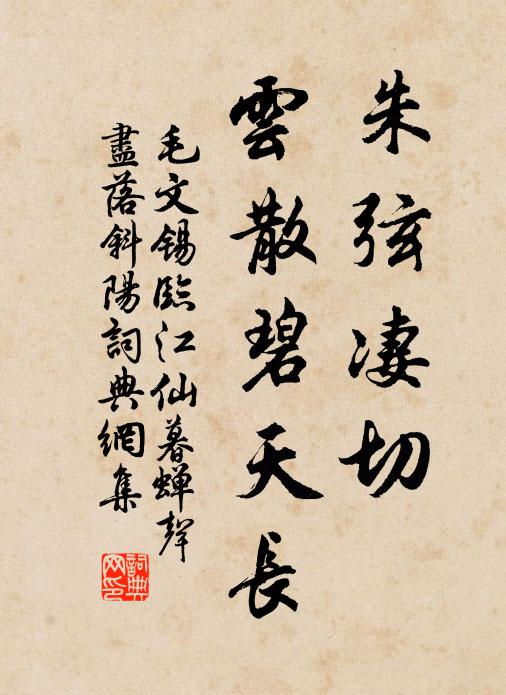 朱弦凄切
雲散碧天長
毛文錫臨江仙暮蟬聲
盡落斜陽詞典網集
詞典
网印